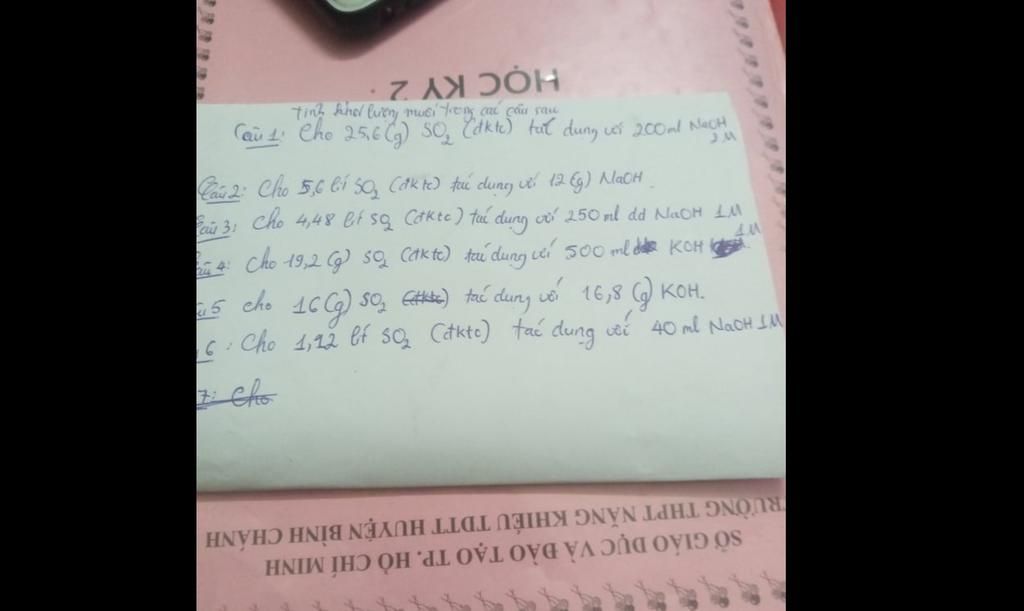 HỌC KỲ 2
Tính khối lượng muối trong các câu sau
Câu 1: Cho 25,6(g) SO2 (đktc) tác dụng với 200ml NaOH
2M
Câu 2: Cho 5,6 lít SO2 (đktc) tác dụng với 12(g) NaOH.
Câu 3: Cho 4,48 lít SO2 (đktc) tác dụng với 250 ml dd NaOH 1M
Câu 4: Cho 19,2(g) SO2 (đktc) tác dụng với 500 ml KOH 1M
u 5 cho 16(g) SO2 (đktc) tác dụng với 16,8(g) KOH.
6: Cho 1,12 lít SO2 (đktc) tác dụng với 40 ml NaOH 1M
7: Cho
TRƯỜNG THPT NĂNG KHIẾU TDTT HUYỆN BÌNH CHÁNH
SỞ GIÁO DỤC VÀ ĐÀO TẠO TP. HỒ CHÍ MINH